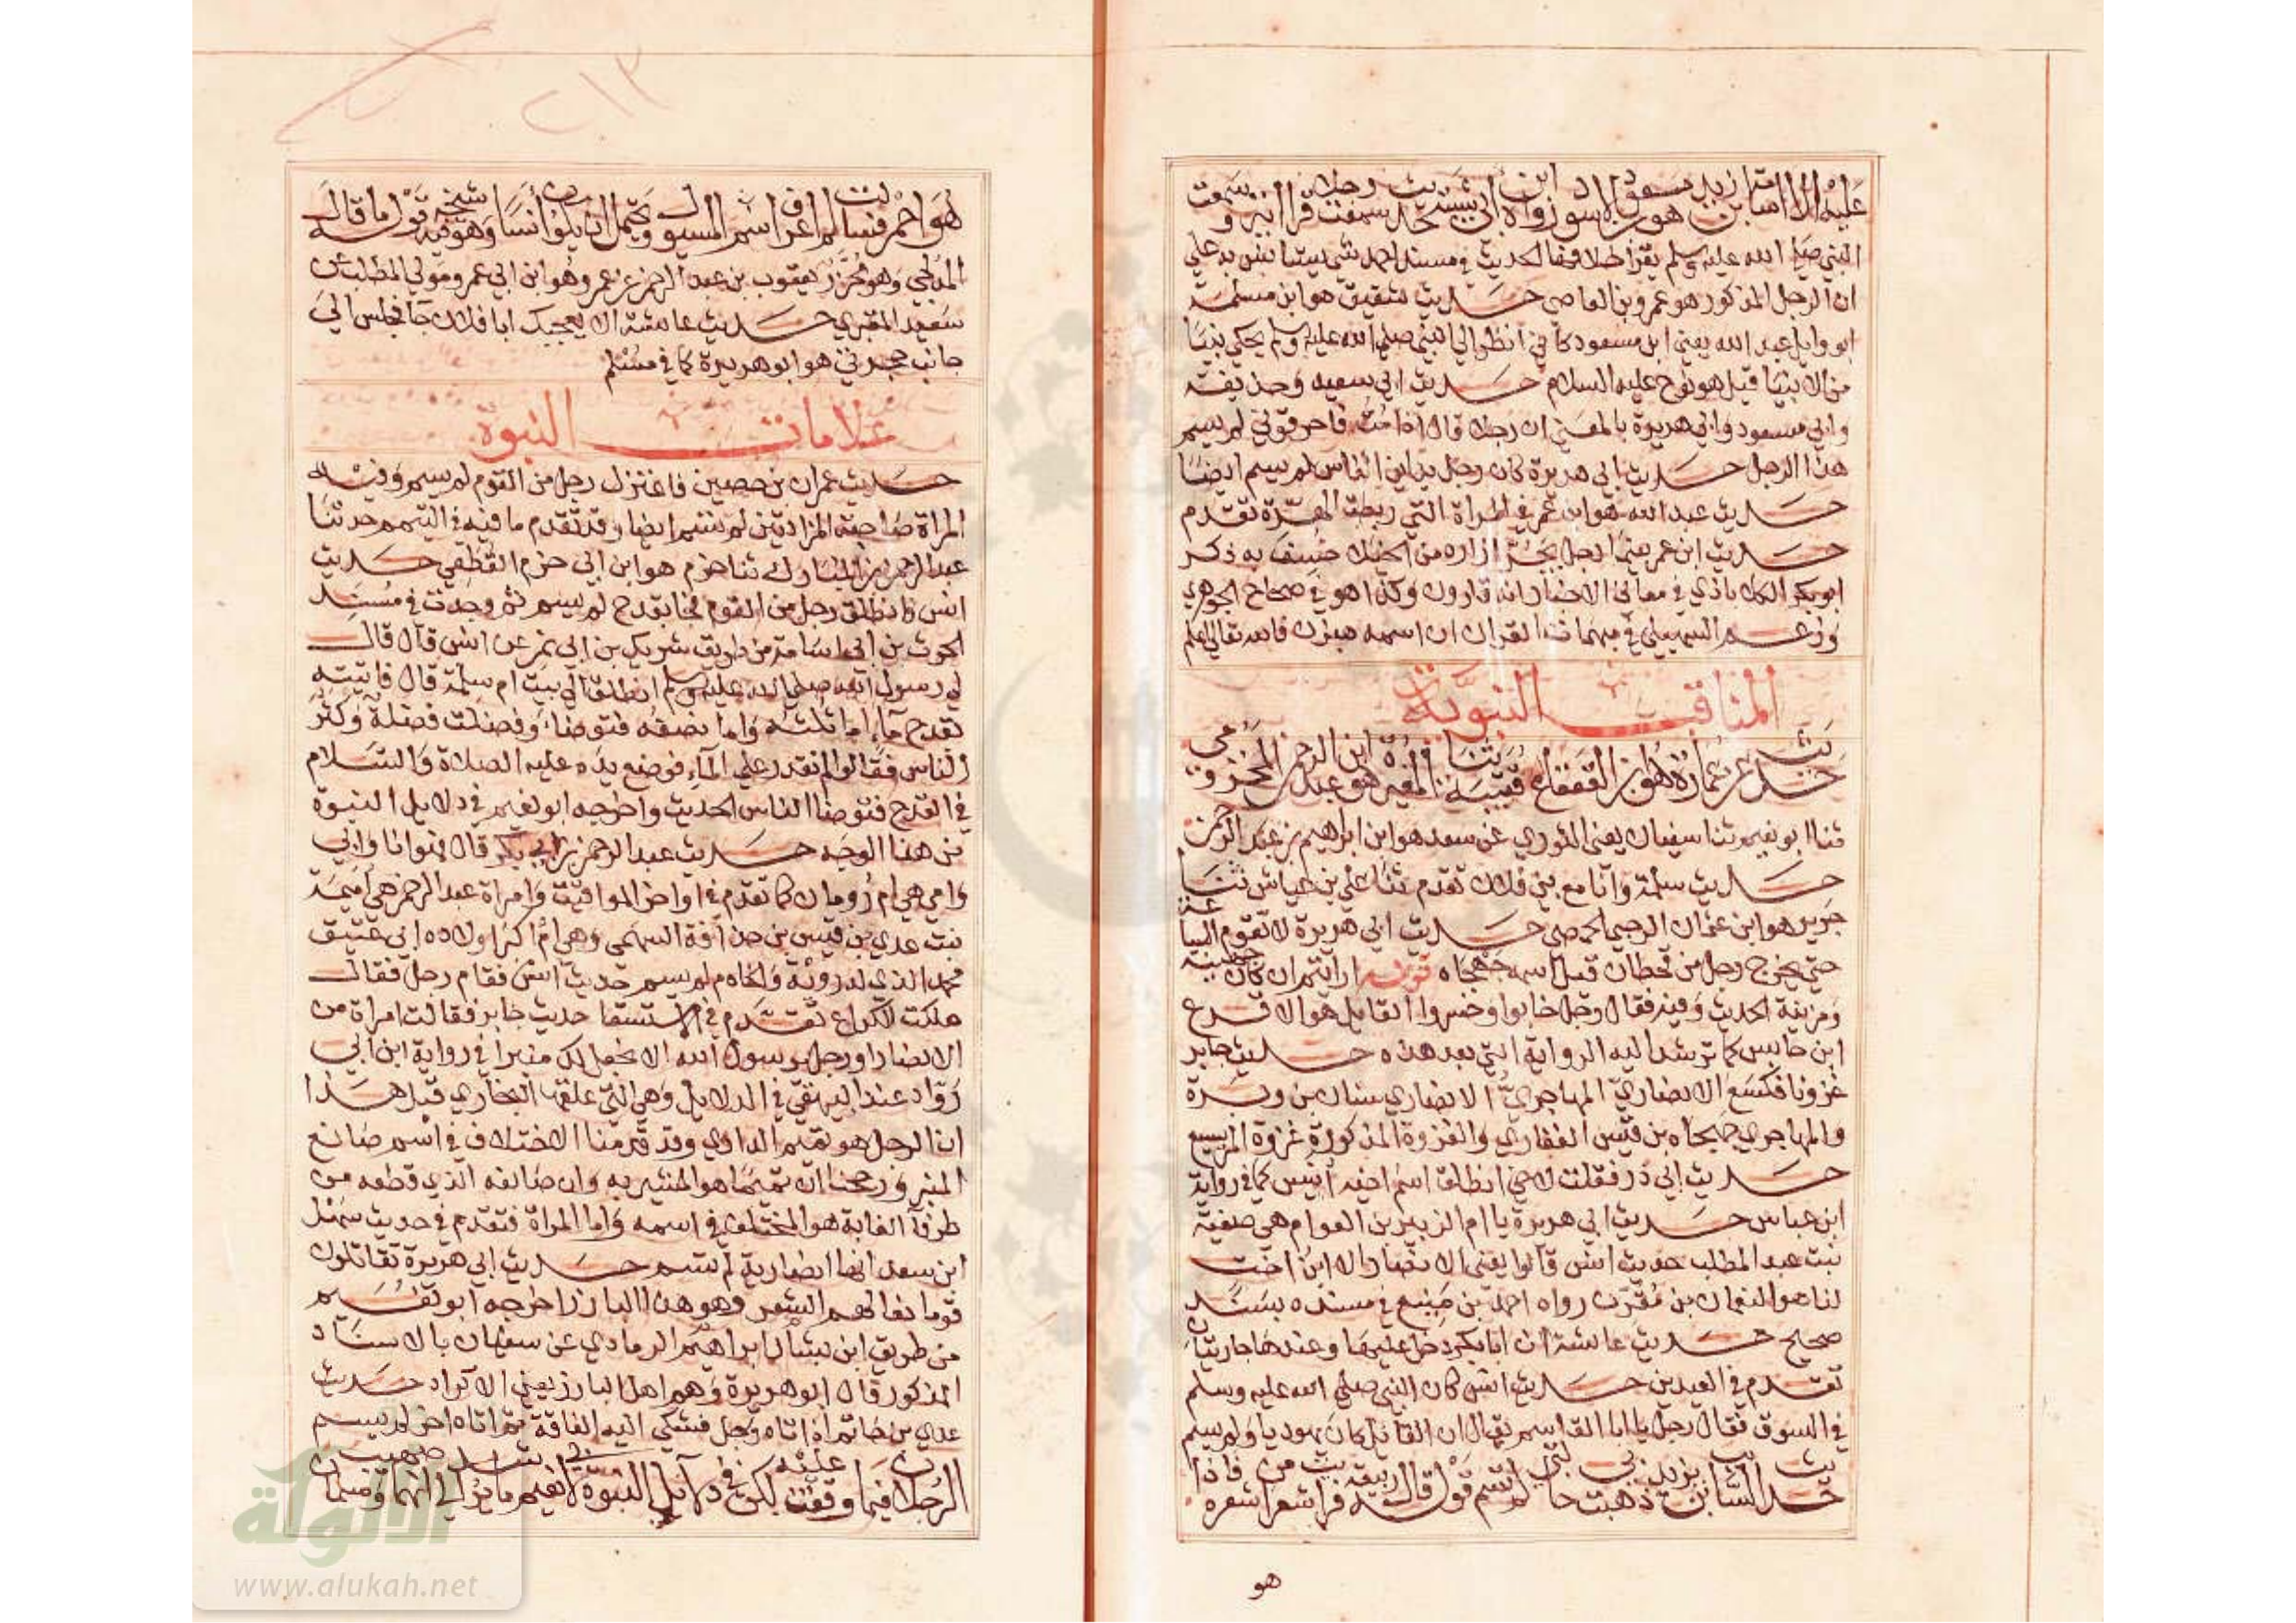 عليه الا اسامة بن زيد هو
النبي صلى الله عليه وسلم يقرأ خلافها الحديث في مسند احمد
ان الرجل المذكور هو عمرو بن العاصي حديث شقيق هو ابن مسلمة
ابو وايل عبد الله يعني ابن مسعود كاني انظر الي النبي صلي الله عليه وسلم يحكي نبيا
من الانبيا قيل هو نوح عليه السلام حديث ابي سعيد وحذيفة
وابي مسعود وابي هريرة بالمعني ان رجلا قال اذا مت فاحرقوني لم يسم
هذا الرجل حديث ابي هريرة كان رجل يداين الناس لم يسم ايضا
حديث عبد الله هو ابن عمر في المراة التي ربطت الهرة تقدم
حديث ابن عمر بينما رجل يجر ازاره من الخيلا خسف به ذكر
ابو بكر الكلاباذي في معاني الاخبار انه قارون وكذا هو في صحاح الجوهري
وزعم السهيلي في مبهمات القران ان اسمه هيزن فالله تعالي اعلم
المناقب النبوية
حديث عن عمارة هو ابن القعقاع قتيبة ثنا المغيرة هو ابن عبد الرحمن المخزومي
ثنا ابو نعيم ثنا سفيان يعني الثوري عن سعد هو ابن ابراهيم بن عبد الرحمن
حديث سلمة وانا مع بني فلان تقدم ثنا علي بن عياش ثنا
جرير هو ابن عثمان الرحبي الحمصي حديث ابي هريرة لا تقوم الساعة
حتي يخرج رجل من قحطان قيل اسمه جهجاه قوله ارايتم ان كان جهينة
ومزينة الحديث وفيه فقال رجل خابوا وخسروا القايل هو الاقرع
ابن حابس كما ترشد اليه الرواية التي بعد هذه حديث جابر
غزونا فكسع الانصاري المهاجري الانصاري سنان بن وبرة
والمهاجري جهجاه بن قيس الغفاري والغزوة المذكورة غزوة المريسيع
حديث ابي ذر فقلت لاخي انطلق اسم اخيه انيس كما في رواية
ابن عباس حديث ابي هريرة يا ام الزبير بن العوام هي صفية
بنت عبد المطلب حديث انس قالوا يعني الانصار الا ابن اخت
لنا هو النعمان بن مقرن رواه احمد بن منيع في مسنده بسند
صحيح حديث عائشة ان ابا بكر دخل عليها وعندها جاريتان
تقدم في العيدين حديث انس كان النبي صلي الله عليه وسلم
في السوق فقال رجل يا ابا القاسم يقال ان القائل كان يهوديا ولم يسم
حديث السائب بن يزيد ذهبت بي خالتي لم تسم قوله قال ربيعة فرايت شعرا من شعره فاذا
هو
هو احمر فسالت لم اعرف اسم المسيول ويحتمل ان يكون انسا وهو شيخه فيه قوله ما قال
المدلجي وهو مجزز يعقوب بن عبد الرحمن عن عمرو هو ابن ابي عمرو مولي المطلب عن
سعيد المقبري حديث عائشة الا يعجبك ابا فلان جا فجلس الي
جانب حجرتي هو ابو هريرة كما في مسلم
علامات النبوة
حديث عمران بن حصين فاعتزل رجل من القوم لم يسم وفيه
المراة صاحبة المزادتين لم تسم ايضا وقد تقدم ما فيه في التيمم حدثنا
عبد الرحمن بن المبارك ثنا حزم هو ابن ابي حزم القطعي حديث
انس فانطلق رجل من القوم فجا بقدح لم يسم ثم وجدت في مسند
الحرث بن ابي اسامة من طريق شريك بن ابي نمر عن انس قال قال
لي رسول الله صلى الله عليه وسلم انطلق الي بيت ام سلمة قال فاتيته
بقدح ماء اما ثلثه واما نصفه فتوضا وفضلت فضلة وكثر
الناس فقالوا لم نقدر علي الماء فوضع يده عليه الصلاة والسلام
في القدح فتوضا الناس الحديث واخرجه ابو نعيم في دلايل النبوة
من هذا الوجه حديث عبد الرحمن بن ابي بكر قال فهو انا وابي
وامي هي ام رومان كما تقدم في اواخر المواقيت وامراة عبد الرحمن هي اميمة
بنت عدي بن قيس بن حذافة السهمي وهي ام اكبر اولاده ابي عتيق
محمد الذي له روية والخادم لم يسم حديث انس فقام رجل فقال
هلكت الكراع تقدم في الاستسقا حديث جابر فقالت امراة من
الانصار او رجل يرسول الله الا نجعل لك منبرا في رواية ابن ابي
رواد عند البيهقي في الدلايل وهي التي علقها البخاري قبل هذا
ان الرجل هو تميم الداري وقد قدمنا الاختلاف في اسم صانع
المنبر ورجحنا ان تميما هو المشير به وان صانعه الذي قطعه من
طرفا الغابة هو المختلف في اسمه واما المراة فتقدم في حديث سهل
ابن سعد انها انصارية لم تسم حديث ابي هريرة تقاتلون
قوما نعالهم الشعر وهو هذا البارز اخرجه ابو نعيم
من طريق ابن بشار ابراهيم الرمادي عن سفيان بالاسناد
المذكور قال ابو هريرة وهم اهل البارز يعني الاكراد حديث
عدي بن حاتم اذ اتاه رجل فشكي اليه الفاقة ثم اتاه اخر لم يسم
الرجلان فيما وقفت عليه لكن في دلايل النبوة لابي نعيم ما يرشد الي انهما صهيب وسلمان
www.alukah.net
الألوكة